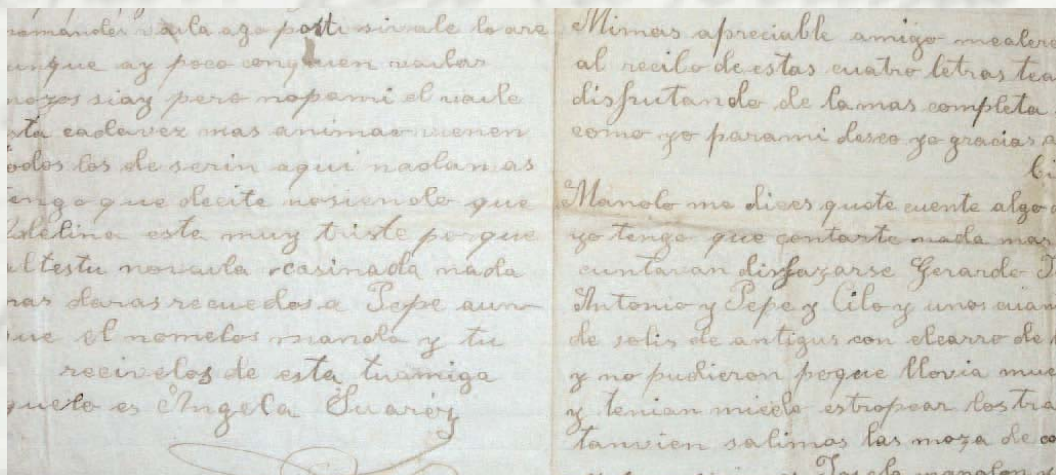 vaila ago parti sivale lo are
unque ay poco conquien vailar
mozos siay pero nopami el vaile
sta cadavez mas animao vienen
todos los de serin aqui nadamas
tengo que decite nosiendo que
Adelina esta muy triste porque
novaila casinada nada
mas daras recuedos a Pepe aun
que el nomelos manda y tu
recivelos de esta tuamiga
quelo es Angela Suarez
Mimas apreciable amigo mealero
al recibo de estas cuatro letras tea
disfrutando de lamas completa
como yo parami deseo yo gracias a
Manolo me dices quete cuente algo
yo tengo que contarte nada mas
cuntavan disfrazarse Gerardo
Antonio y Pepe y Cilo y unos cuan
de solis de antigus con elcarro de
y no pudieron peque llovia mue
y tenian miedo estropear los tra
tanvien salimos las moza de co